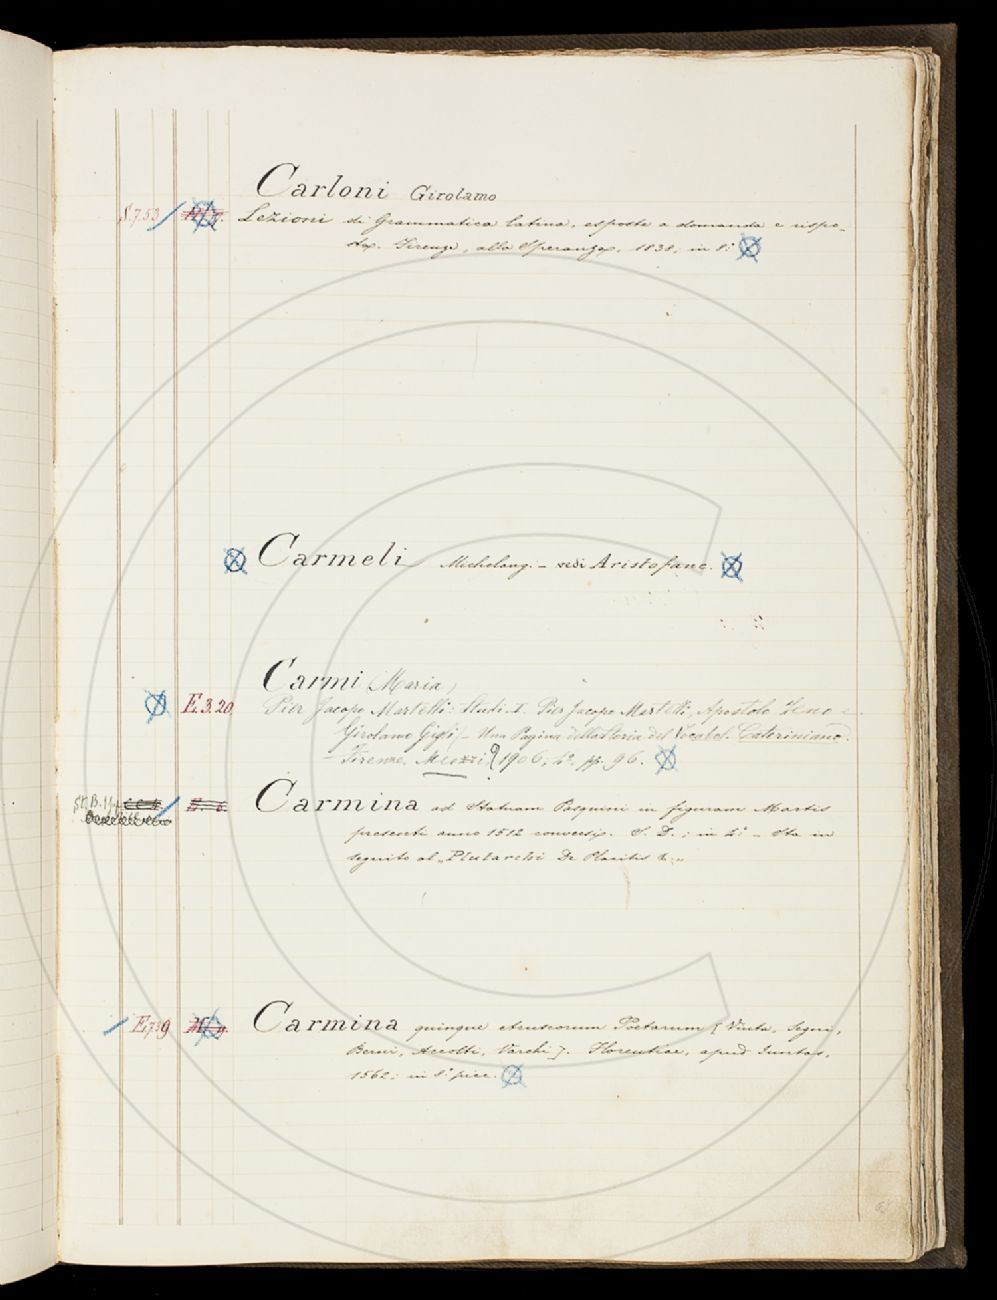 Carloni Girolamo
S.7.53 Lezioni di Grammatica latina, esposte a domanda e rispo-
sta. Firenze, alla Speranza, 1838, in 8°
Carmeli Michelang. - vedi Aristofane.
Carmi (Maria)
E.3.20 Pier Jacopo Martelli: Studi. I. Pier Jacopo Martelli, Apostolo Zeno e
Girolamo Gigli - Una Pagina della Storia del Vocabol. Cateriniano.
- Firenze, Meozzi, 1906; 4°. pp. 96.
Carmina ad Statuam Pasquini in figuram Martis
presenti anno 1512 conversis. S. D.; in 4° - Sta in
seguito al „Plutarchi De Placitis &„
E.7.39 Carmina quinque etruscorum Poetarum [Vinta, Segni,
Berni, Accolti, Varchi]. Florentiae, apud Juntas,
1562; in 8° picc.